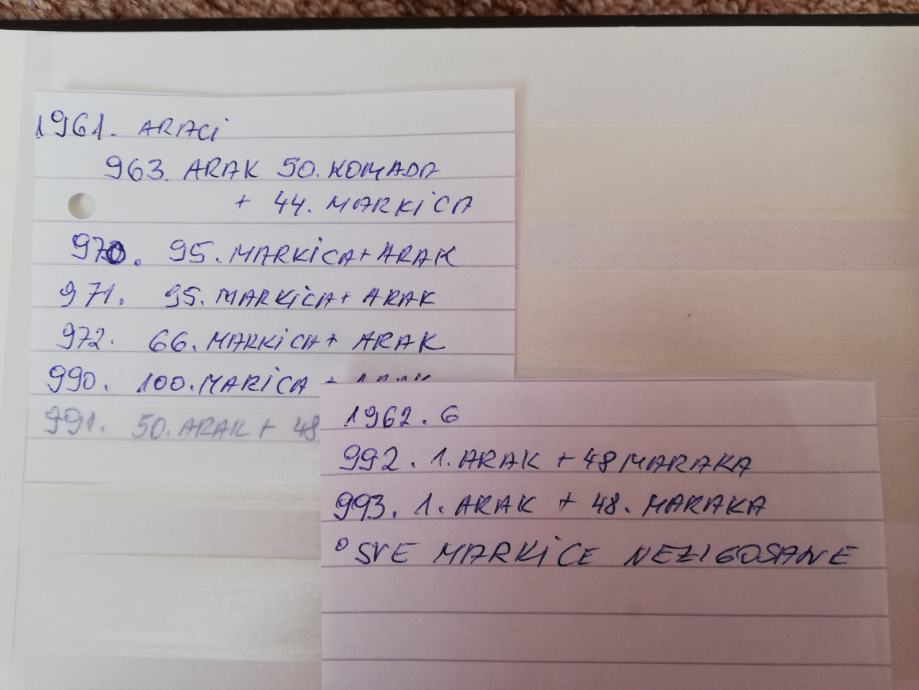 1961. ARACi
963. ARAK 50. KOMADA
+ 44. MARKiCA
970. 95. MARKiCA + ARAK
971. 95. MARKiCA + ARAK
972. 66. MARKiCA + ARAK
990. 100. MARiCA + ARAK
991. 50. ARAK + 48
1962. G
992. 1. ARAK + 48 MARAKA
993. 1. ARAK + 48. MARAKA
° SVE MARKiCE NEZIGOSANE